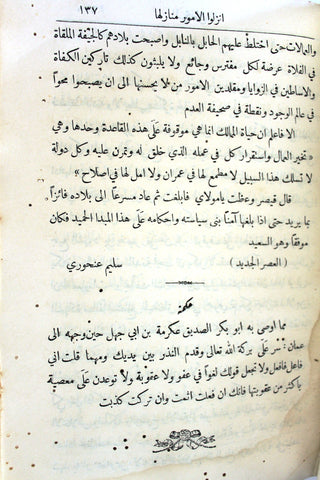 انزلوا الامور منازلها ١٣٧
والعمالات حتى اختلط عليهم الحابل بالنابل واصبحت بلادهم كالجيفة الملقاة
في الفلاة عرضة لكل مفترس وجائع ولا يلبثون كذلك تاركين الكفاة
والاساطين في الزوايا ومقلدين الامور من لا يحسنها الى ان يصبحوا محواً
في عالم الوجود ونقطة في صحيفة العدم
الا فاعلم ان حياة المالك انما هي موقوفة على هذه القاعدة وحدها وهي
« تخير العمال واستقرار كل في عمله الذي خلق له وتمرن عليه وكل دولة
لا تسلك هذا السبيل لا مطمع لها في عمران ولا امل لها في اصلاح »
قال قيصر وعظت يا مولاي فابلغت ثم عاد مسرعاً الى بلاده فائزاً
بما يريد حتى اذا بلغها آمناً بنى سياسته واحكامه على هذا المبدا الحميد فكان
موفقاً وهو السعيد
( العصر الجديد ) سليم عنحوري
حكمة
مما اوصى به ابو بكر الصديق عكرمة بن ابي جهل حين وجهه الى
عمان: سر على بركة الله تعالى وقدم النذر بين يديك ومهما قلت اني
فاعل فافعل ولا تجعل قولك لغواً في عفو ولا عقوبة ولا توعدن على معصية
باكثر من عقوبتها فانك ان فعلت اثمت وان تركت كذبت